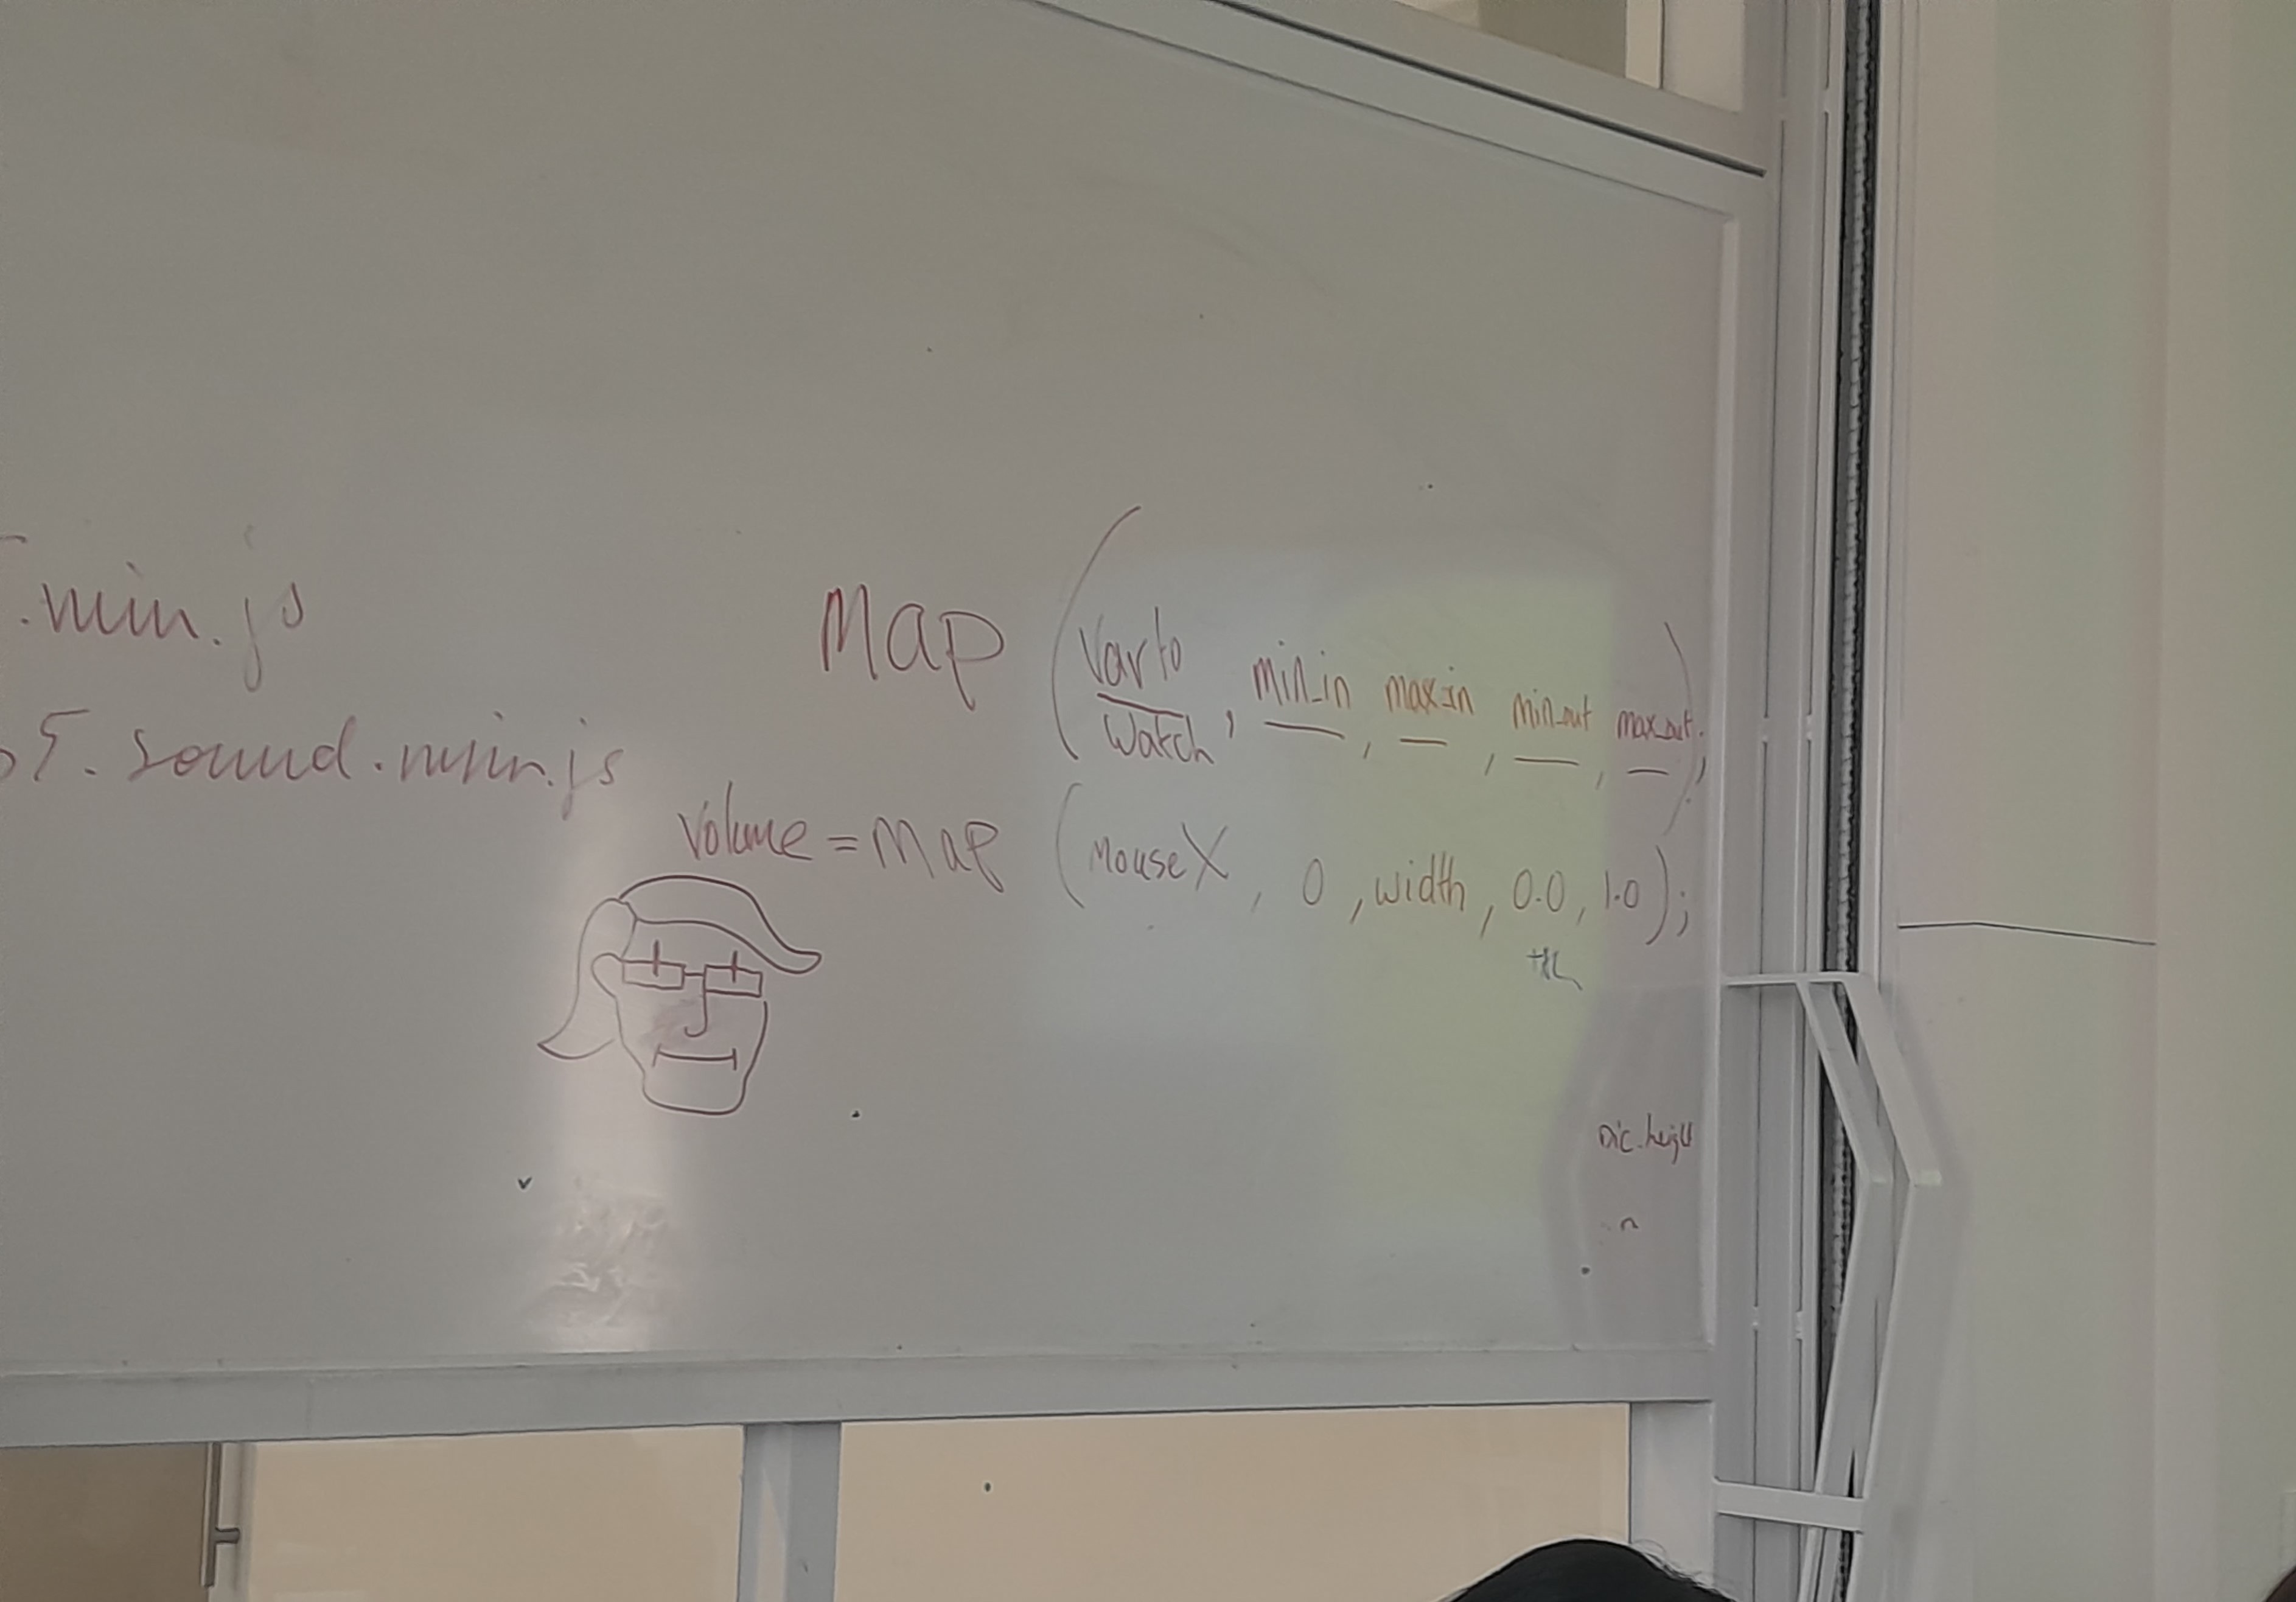 .min.js
5.sound.min.js
Map (var to watch, min_in, max_in, min_out, max_out);
Volume = Map (mouseX, 0, width, 0.0, 1.0);